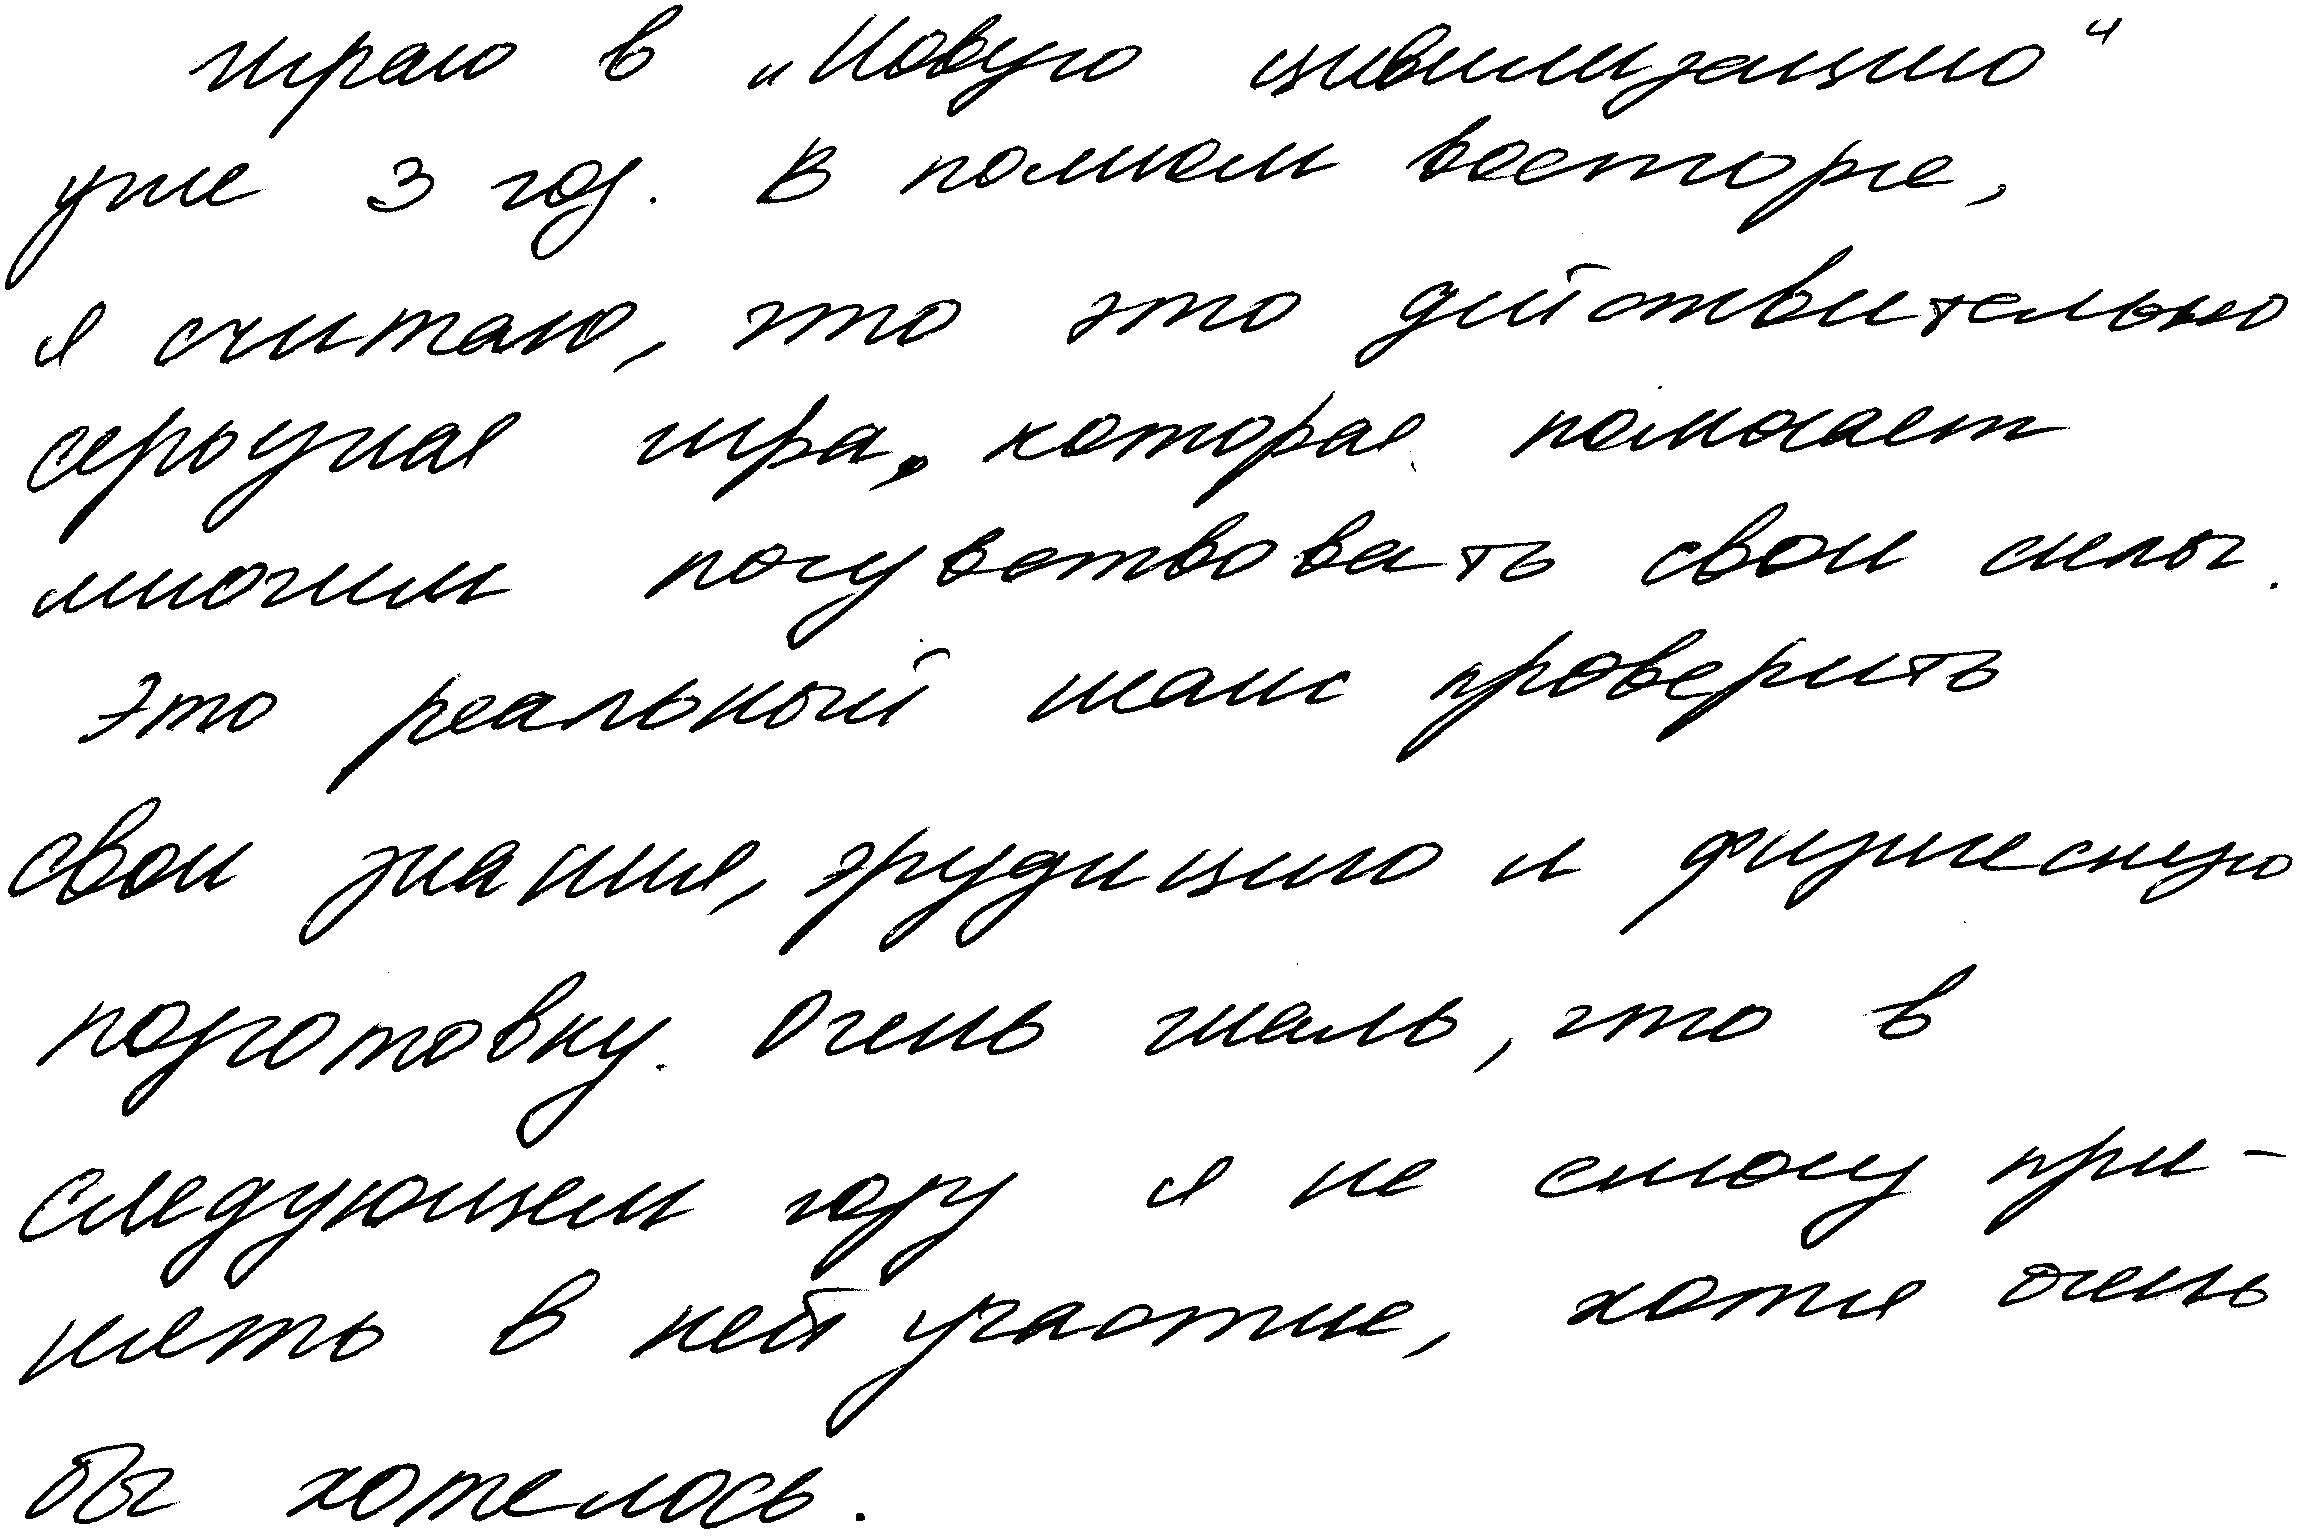 играю в „Новую цивилизацию“
уже 3 год. В полном восторге,
я считаю, что это действительно
серьузная игра, которая помогает
многим почувствовать свои силы.
Это реальный шанс проверить
свои знания, эрудицию и физическую
подготовку. Очень жаль, что в
следующем году я не смогу при-
нять в ней участие, хотя очень
бы хотелось.